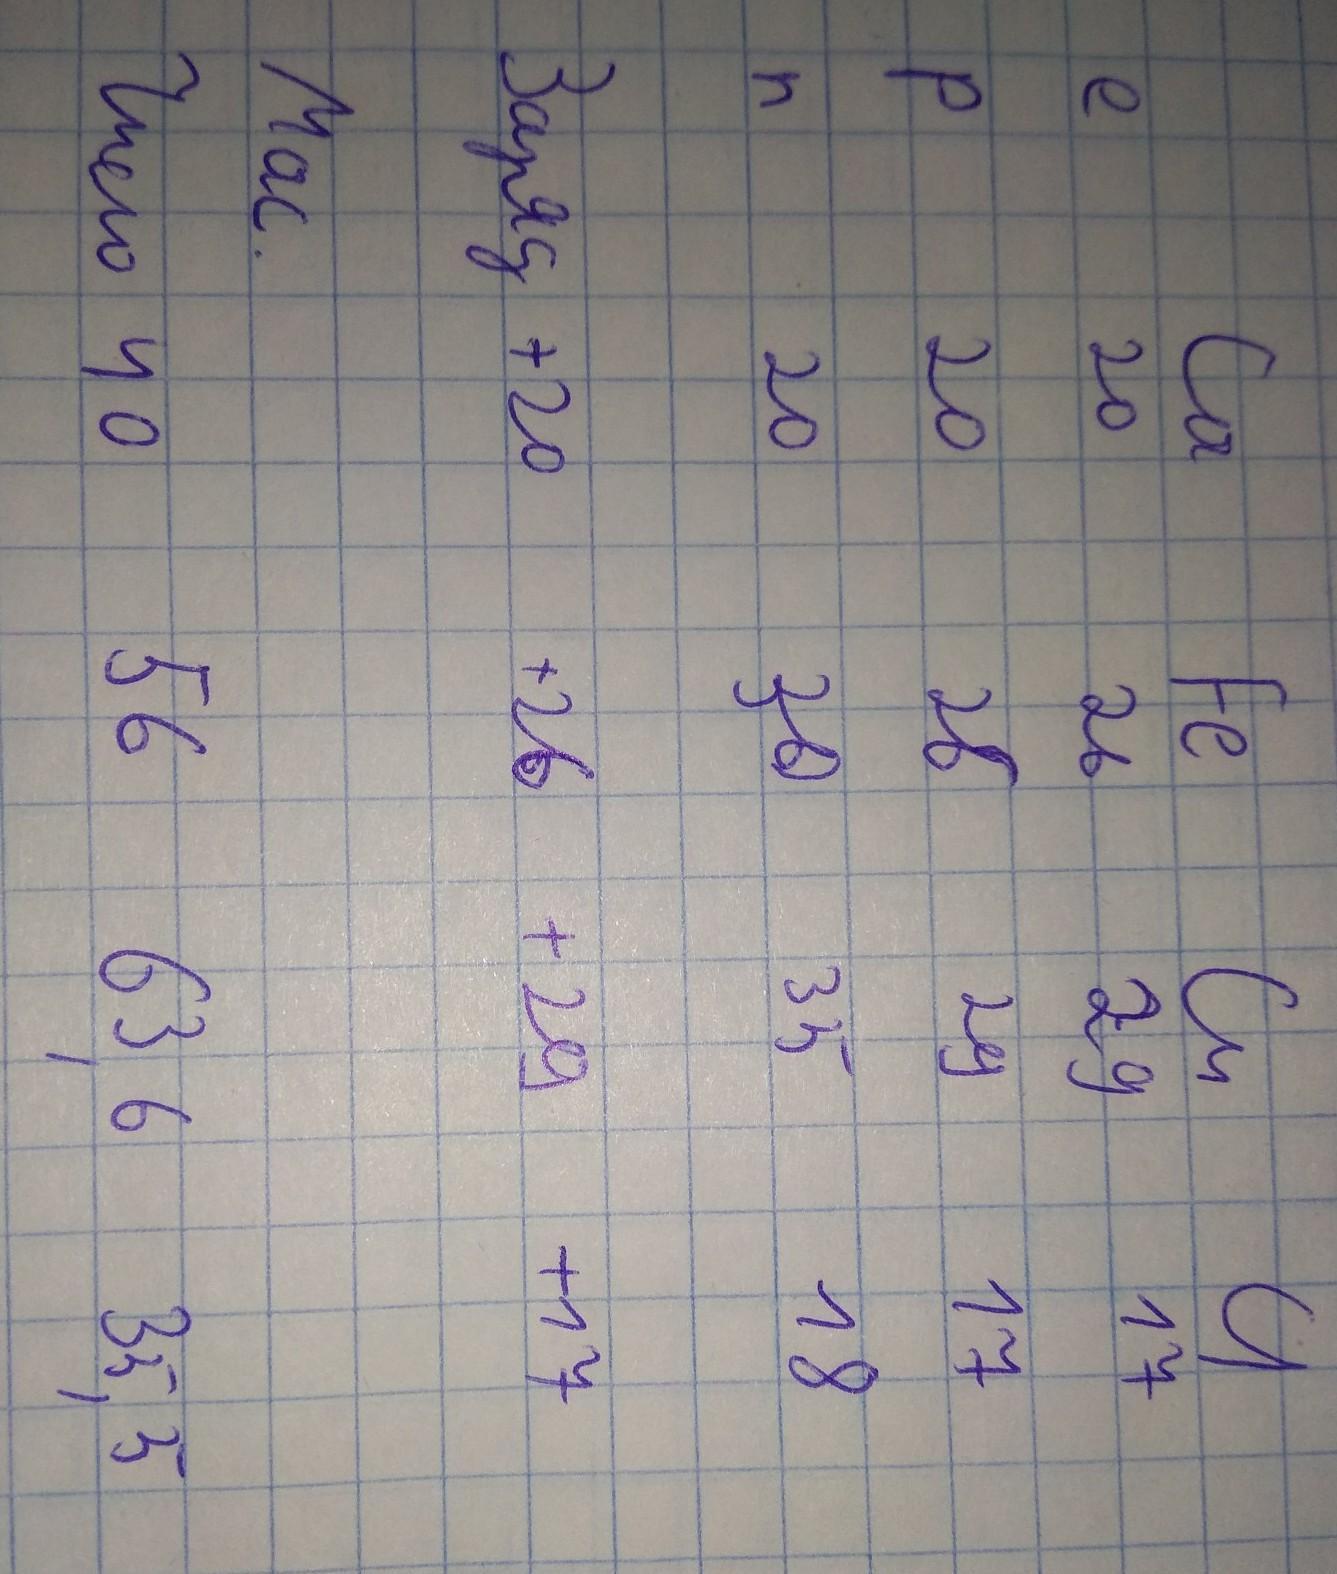 Ca Fe Cu Cl
e 20 26 29 17
p 20 26 29 17
n 20 30 35 18
Заряд +20 +26 +29 +17
Мас.
Число 40 56 63,6 35,5